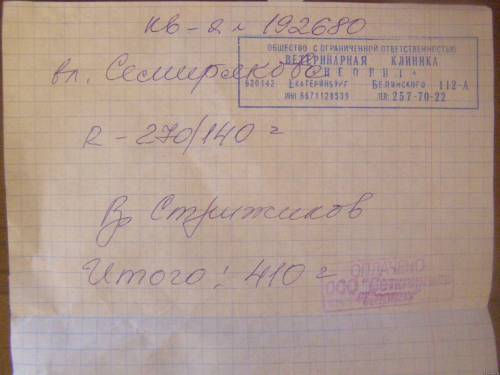 кв-я № 192680
ОБЩЕСТВО С ОГРАНИЧЕННОЙ ОТВЕТСТВЕННОСТЬЮ
ВЕТЕРИНАРНАЯ КЛИНИКА
вл. Семирякова
620142 ЕКАТЕРИНБУРГ БЕЛИНСКОГО 112-А
ИНН 6671128539 ТЕЛ: 257-70-22
R - 270/140 г
Вр Стрижиков
Итого: 410 г
ОПЛАЧЕНО
ООО